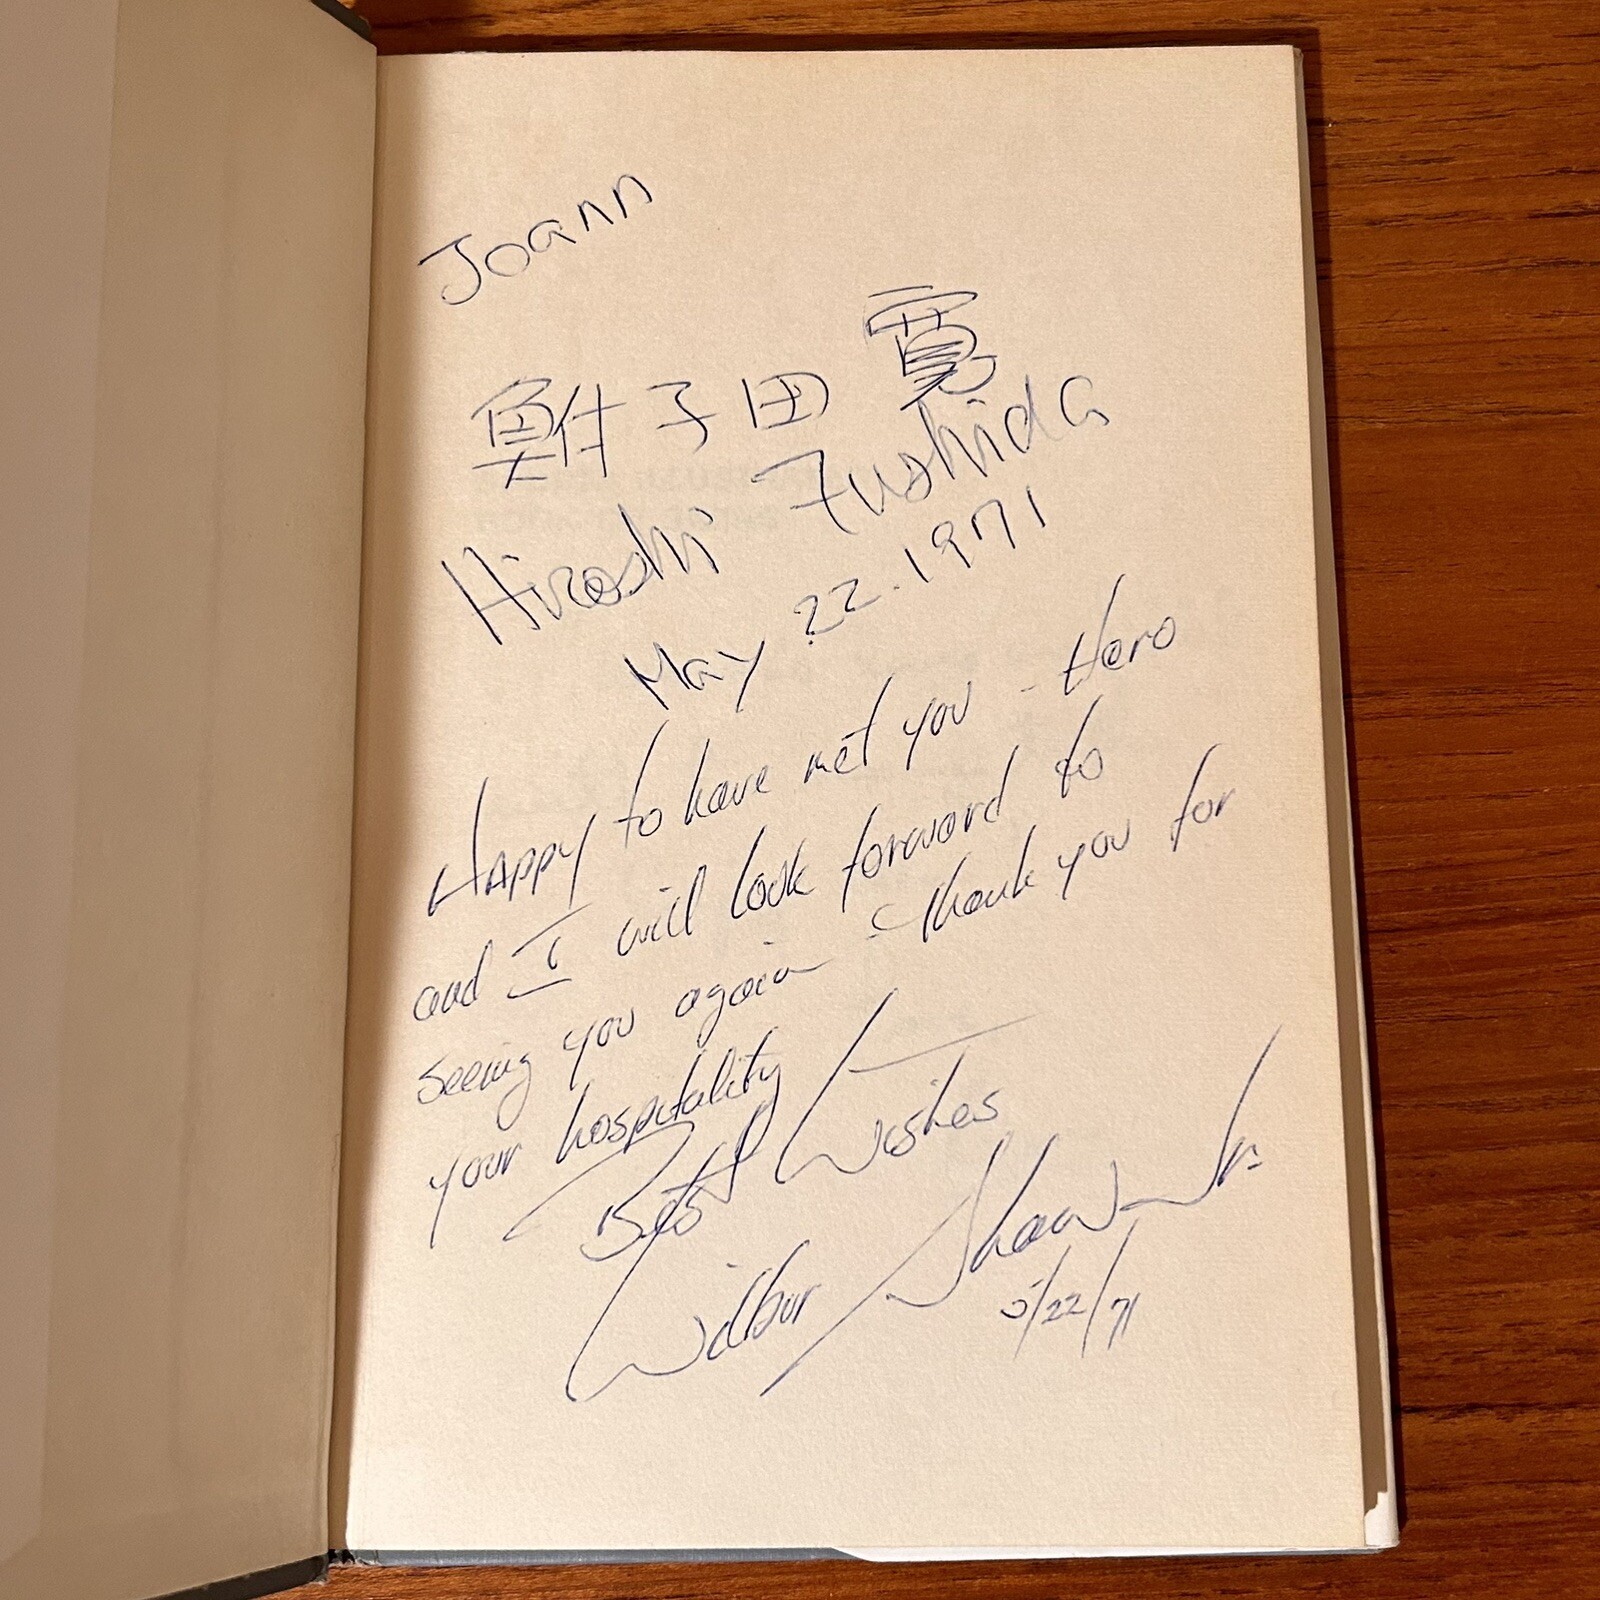 Joann
鮒子田 寛
Hiroshi Fushida
May 22. 1971
Happy to have met you - Hero
and I will look forward to
seeing you again - Thank you for
your hospitality
Best Wishes
Wilbur Shaw Jr.
5/22/71